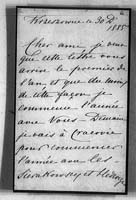 Kreszowice 30 Dc
1885
Cher ami, je veux
que cette lettre vous
arrive le premier de
l'an et que du moins
de cette façon je
commence l'année
avec Vous. Demain
je vais à Cracovie
pour commencer
l'année avec les
et